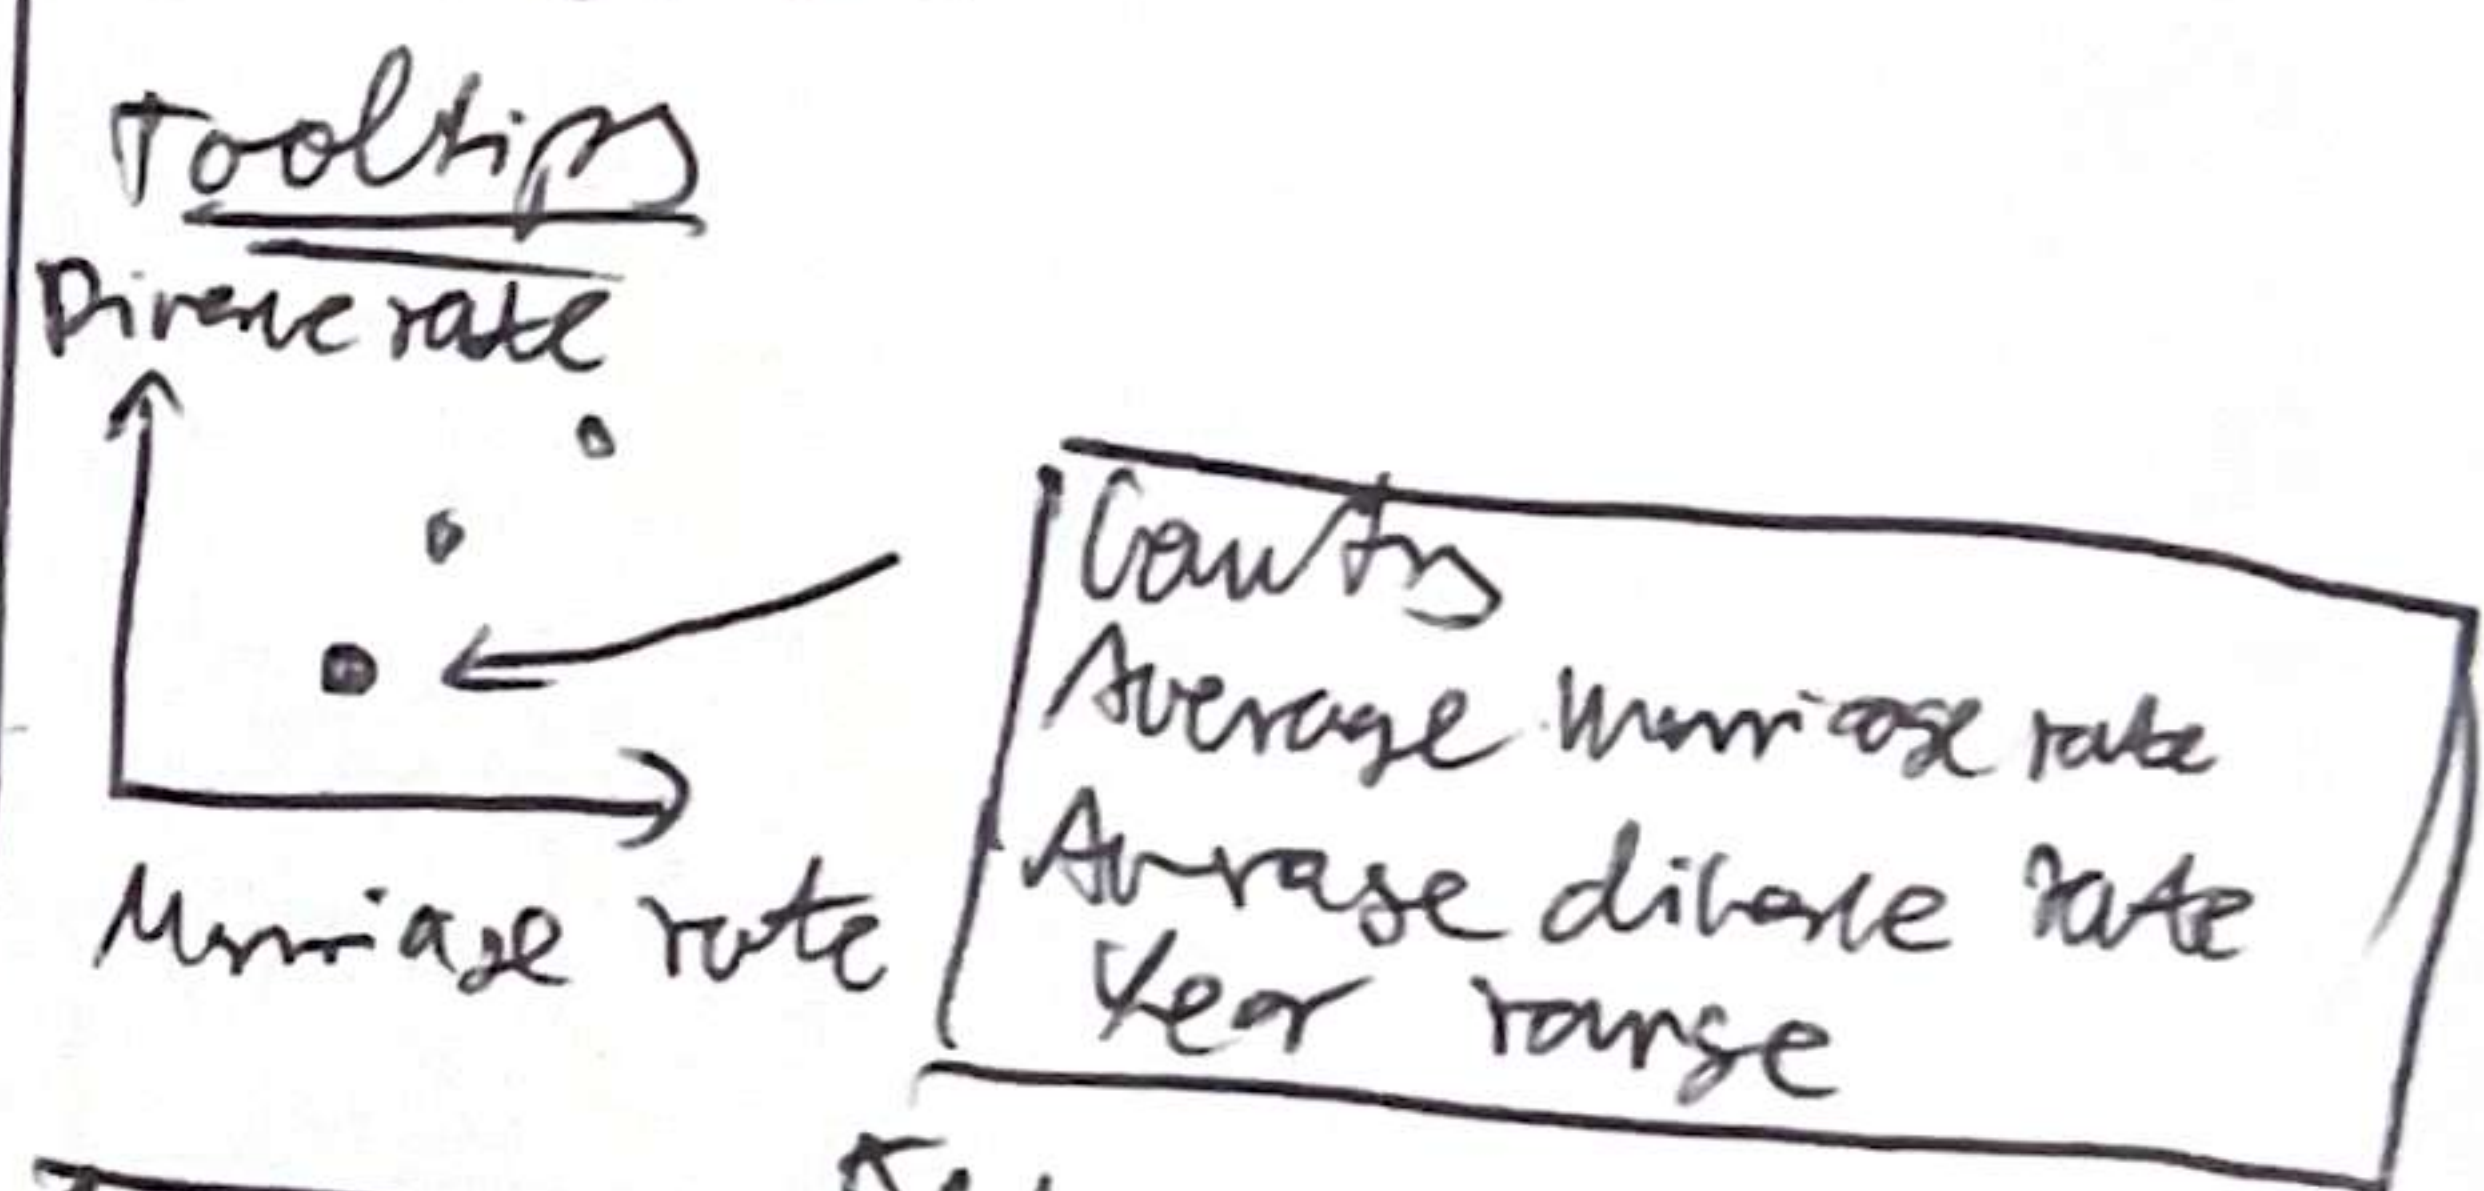 Tooltips
Divorce rate
Marriage rate
Country
Average marriage rate
Average divorce rate
Year range